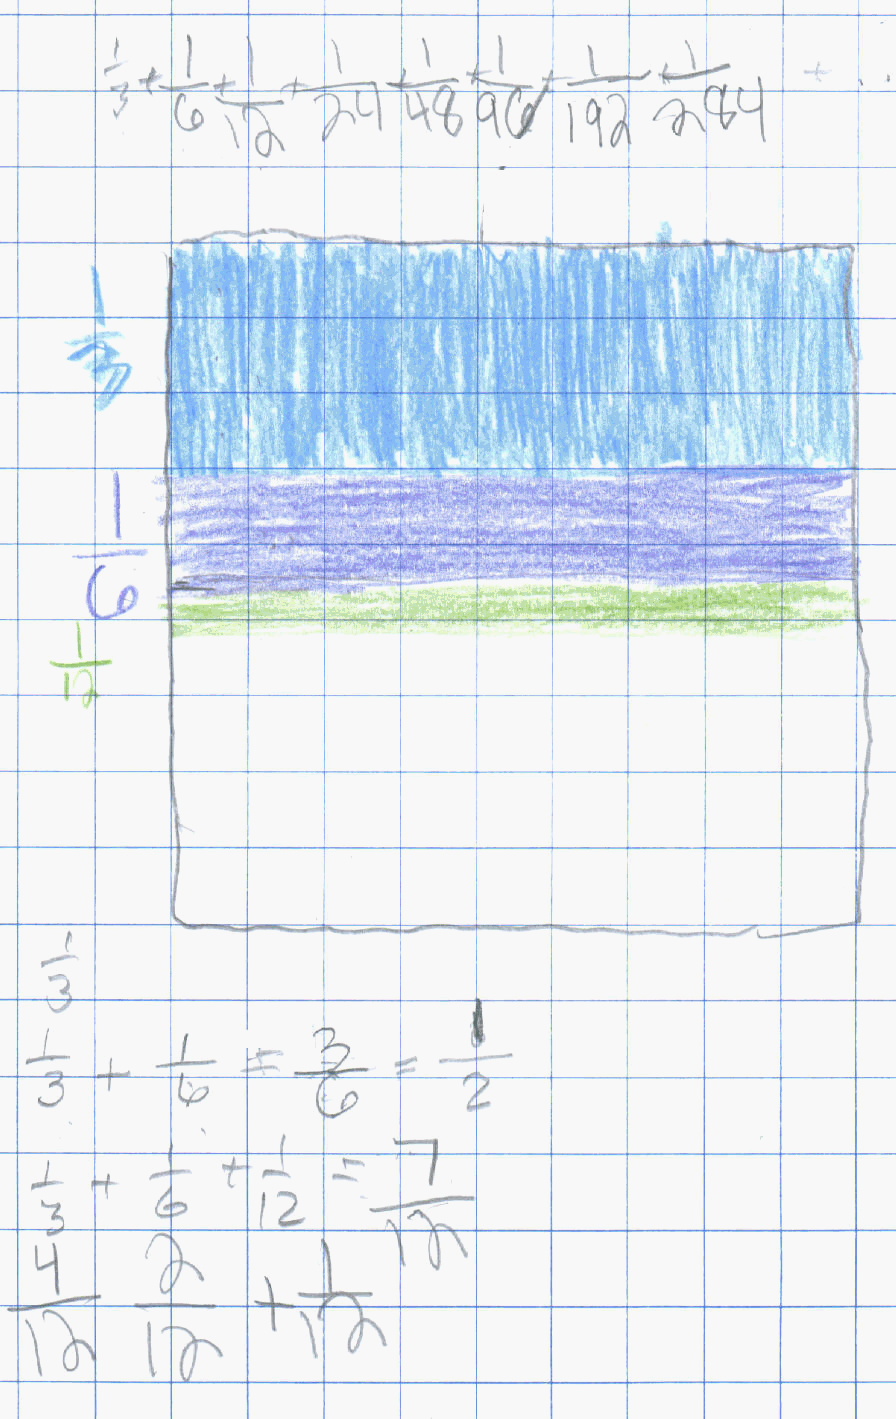 1/3 + 1/6 + 1/12 + 1/24 + 1/48 + 1/96 + 1/192 + 1/284 + ...
1/3
1/6
1/12
1/3
1/3 + 1/6 = 3/6 = 1/2
1/3 + 1/6 + 1/12 = 7/12
4/12 2/12 + 1/12